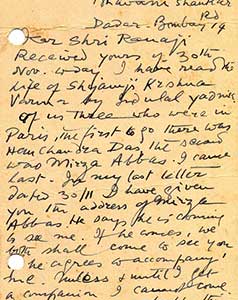 Bhawani Shankar
Rd
Dadar - Bombay
Dear Shri Ranaji
Received yours of 30th
Nov. today I have read the
life of Shyamji Krishna
Varma by Indulal Yadnik
of us three who were in
Paris the first to go there was
Hem Chandra Das, the second
was Mirza Abbas. I came
last. In my last letter
dated 30/11 I have given
you the address of Mirza
Abbas He says he is coming
to see me. If he comes, we
both shall come to see you
if he agrees to accompany
me. Unless & until I get
a companion I cannot come